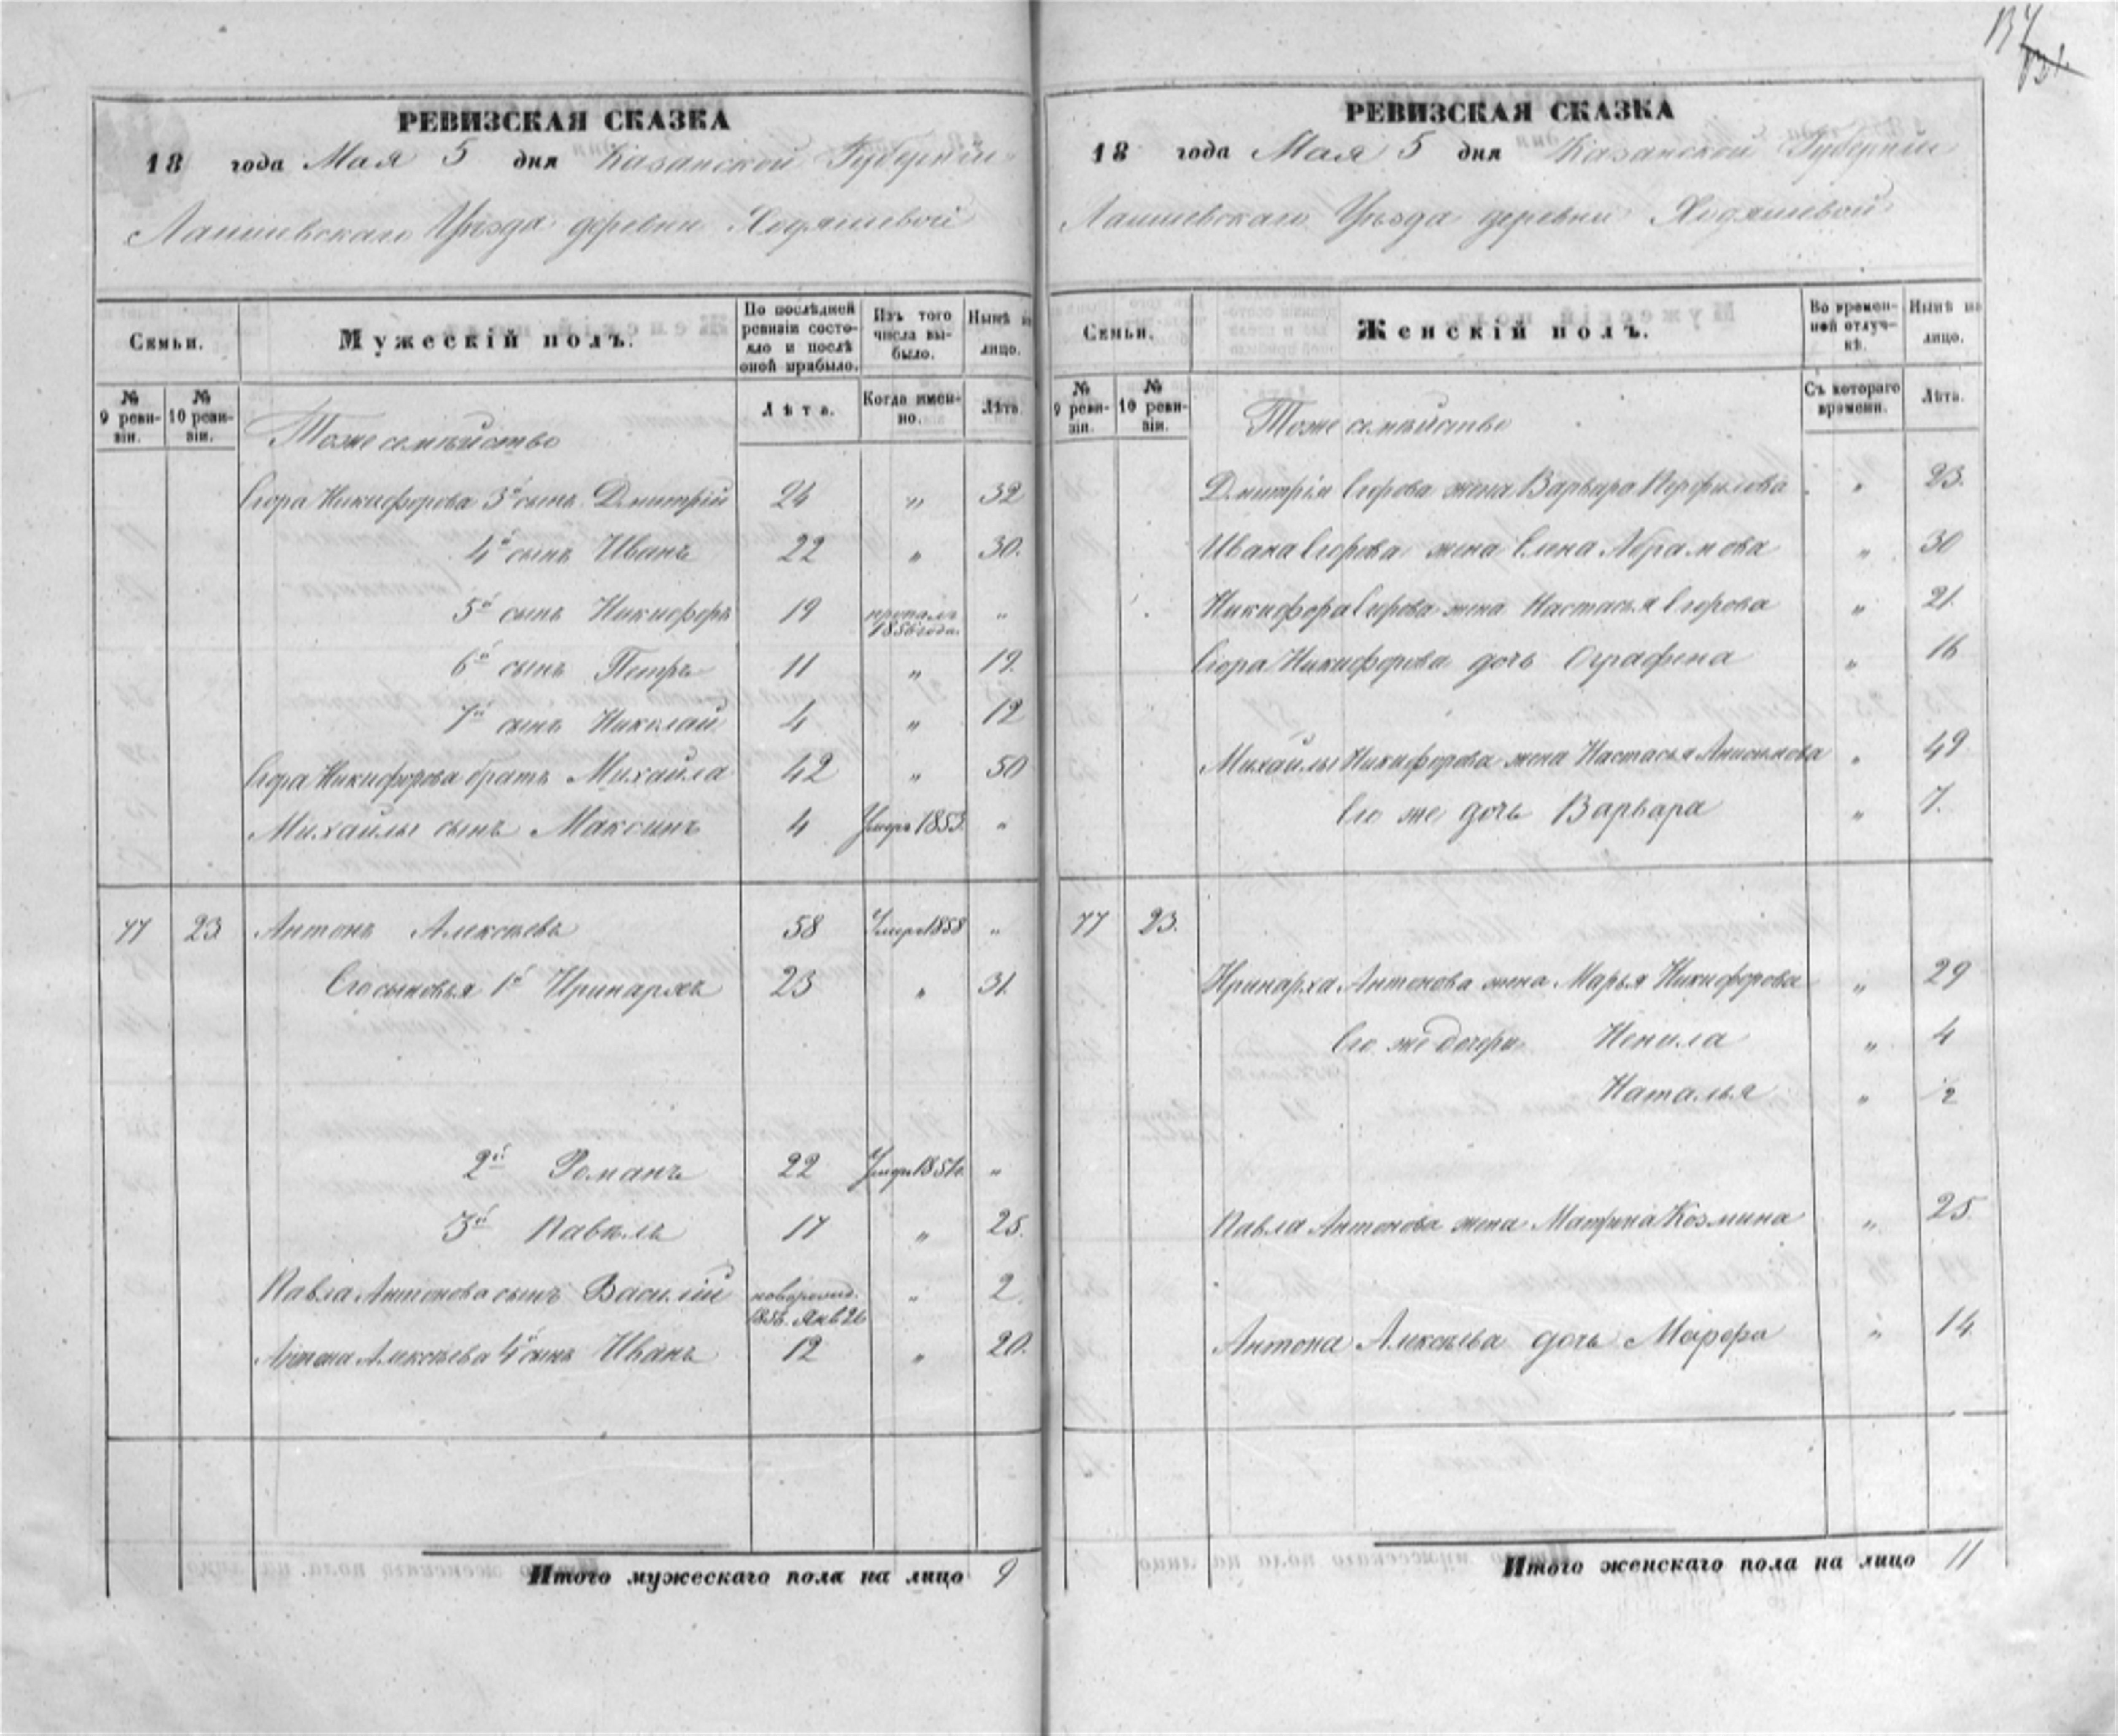 РЕВИЗСКАЯ СКАЗКА
18 года Мая 5 дня Казанской Губерніи
Лаишевскаго Уѣзда деревни Ходяшевой
Семьи.
Мужескій полъ.
По послѣдней ревизіи состояло и послѣ оной прибыло.
Изъ того числа выбыло.
Нынѣ на лицо.
№ 9 ревизіи.
№ 10 ревизіи.
Лѣта.
Когда именно.
Лѣта.
Тоже семѣйство
Егора Никифорова 3й сынъ Дмитрій 24 " 32
4й сынъ Иванъ 22 " 30.
5й сынъ Никифоръ 19 пропалъ 1856 года. "
6й сынъ Петръ 11 " 19.
7й сынъ Николай 4 " 12
Егора Никифорова братъ Михайла 42 " 50
Михайлы сынъ Максимъ 4 Умеръ 1853. "
77 23 Антонъ Алексѣевъ 58 Умеръ 1858 "
Его сыновья 1й Иринархъ 23 " 31.
2й Романъ 22 Умеръ "
3й Павелъ 17 " 25.
Павла Антонова сынъ Василій новорожд. 1856. Янв 26 " 2
Антона Алексѣева 4й сынъ Иванъ 12 " 20.
Итого мужескаго пола на лицо 9
РЕВИЗСКАЯ СКАЗКА
18 года Мая 5 дня Казанской Губерніи
Лаишевскаго Уѣзда деревни Ходяшевой
Семьи.
Женскій полъ.
Во временной отлучкѣ.
Нынѣ на лицо.
№ 9 ревизіи.
№ 10 ревизіи.
Съ котораго времени.
Лѣта.
Тоже семѣйство
Дмитрія Егорова жена Варвара Перфилова " 23.
Ивана Егорова жена Елена Абрамова " 30
Никифора Егорова жена Настасья Егорова " 21.
Егора Никифорова дочь Аграфена " 16
Михайлы Никифорова жена Настасья Анисимова " 49
Его же дочь Варвара " 7.
77 23.
Иринарха Антонова жена Марья Никифорова " 29
Его же дочери Ненила " 4
Наталья " 2
Павла Антонова жена Матрена Козмина " 25.
Антона Алексѣева дочь Марфа " 14
Итого женскаго пола на лицо 11